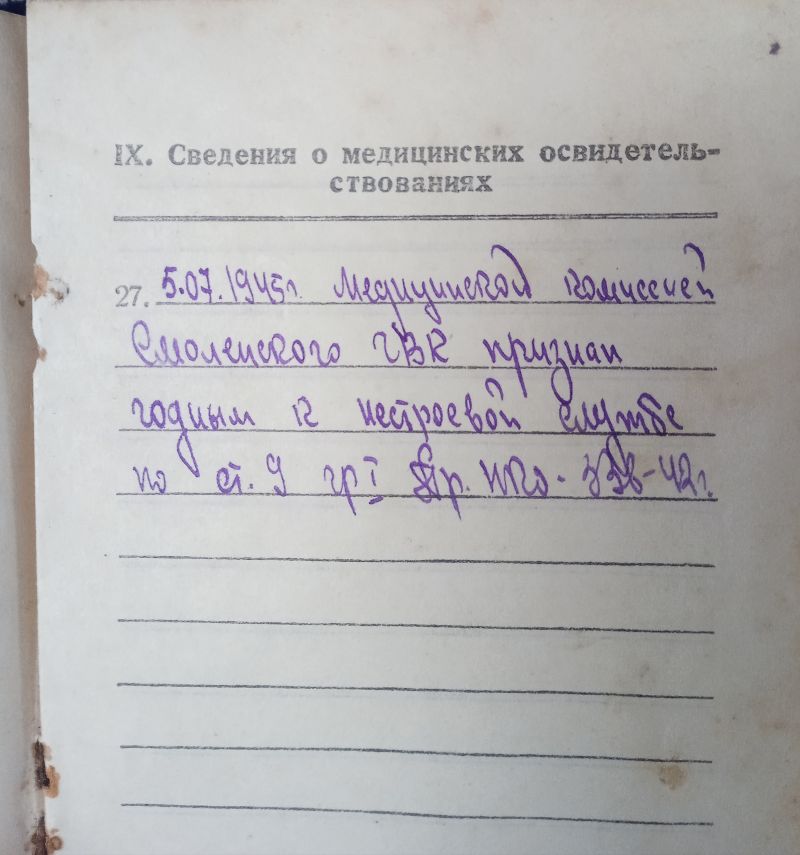 IX. Сведения о медицинских освидетель-
ствованиях
27. 5.07.1945г. Медицинской комиссией
Смоленского ГВК признан
годным к нестроевой службе
по ст. 9 гр I Пр. НКО - 336-42г.